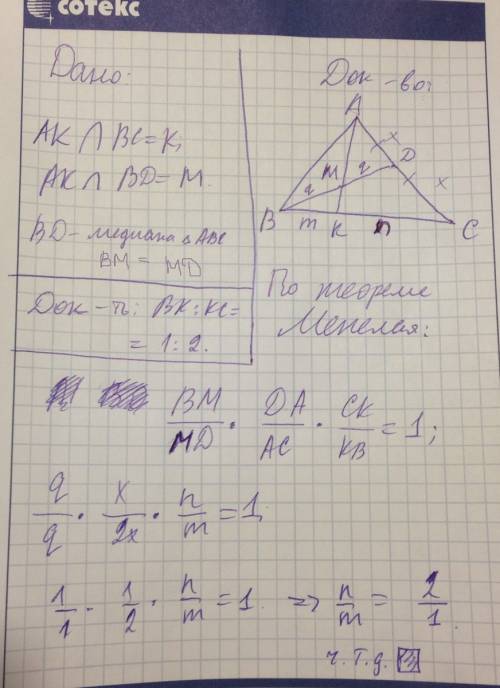 сотекс
Дано:
AK ∩ BC = K,
AK ∩ BD = M.
BD – медиана △ ABC
BM = MD
Док-ть: BK : KC =
= 1 : 2.
Док-во:
A
x
D
M
q
x
q
x
B
m
K
n
C
По теореме
Менелая:
BM/MD · DA/AC · CK/KB = 1;
q/q · x/2x · n/m = 1
1/1 · 1/2 · n/m = 1 => n/m = 2/1.
ч.т.д.